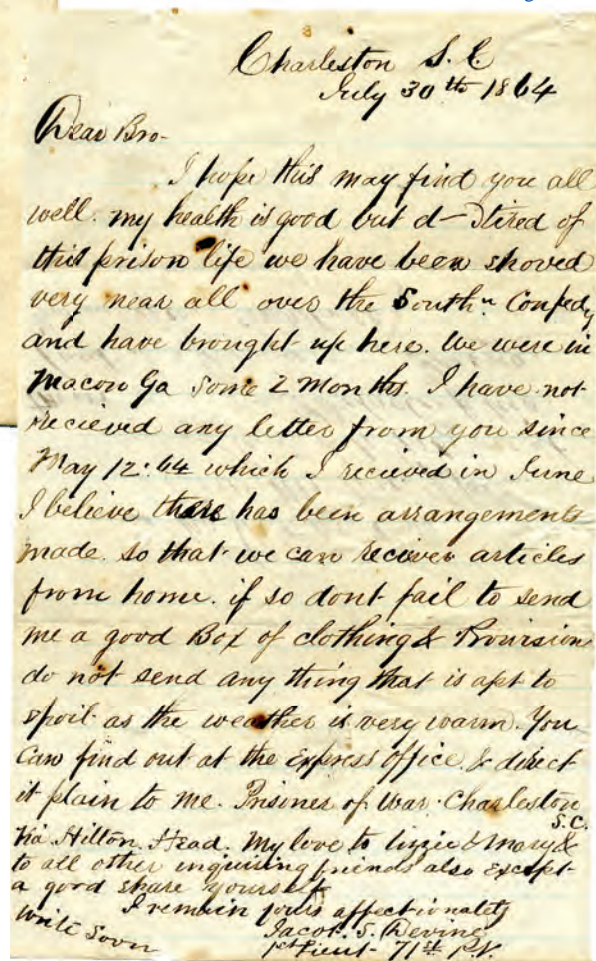 Charleston S. C.
July 30th 1864
Dear Bro-
I hope this may find you all
well. my health is good but d— tired of
this prison life we have been shoved
very near all over the Southn Confedy
and have brought up here. We were in
Macon Ga some 2 Months. I have not
recieved any letter from you since
May 12. 64 which I recieved in June
I believe there has been arrangements
made. so that we can reciever articles
from home. if so dont fail to send
me a good Box of clothing & Provisions
do not send any thing that is apt to
spoil as the weather is very warm. You
can find out at the Express Office. & direct
it plain to me. Prisiner of War. Charleston
S.C.
Via Hilton. Head. My love to Lizzie & Mary &
to all other inquiring friends also except
a good share yourself
I remain yours affectionately
Write Soon
Jacob. S. Devine
1st Lieut- 71st P.V.